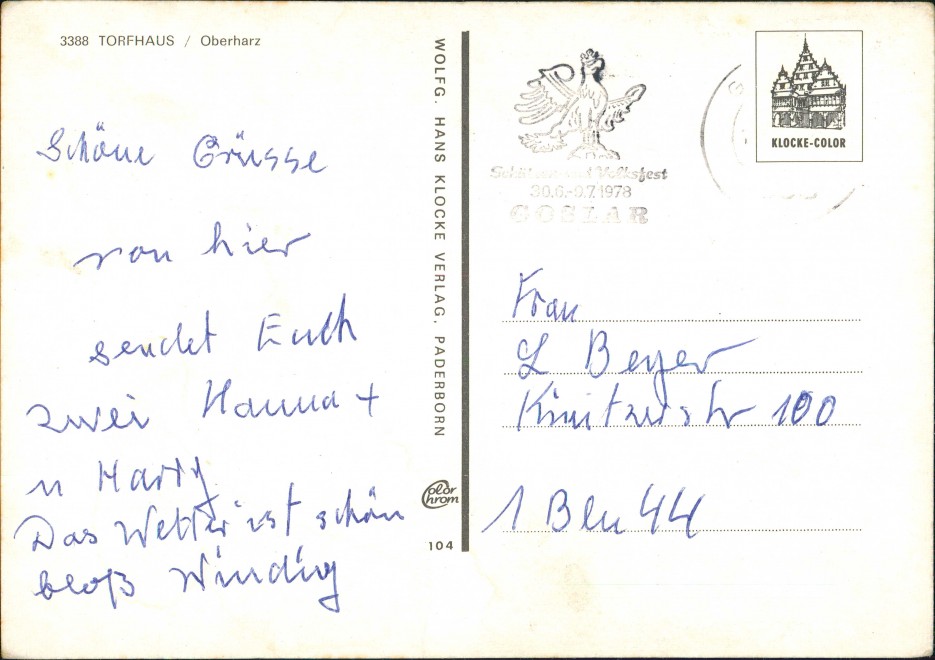 3388 TORFHAUS / Oberharz
Schöne Grüsse
von hier
sendet Euch
zwei Hanna +
u Harry
Das Wetter ist schön
bloß Windig
WOLFG. HANS KLOCKE VERLAG, PADERBORN
Color Chrom
104
Schützen- und Volksfest
30.6.-9.7.1978
GOSLAR
KLOCKE-COLOR
Frau
L Beyer
100
1 Bln 44